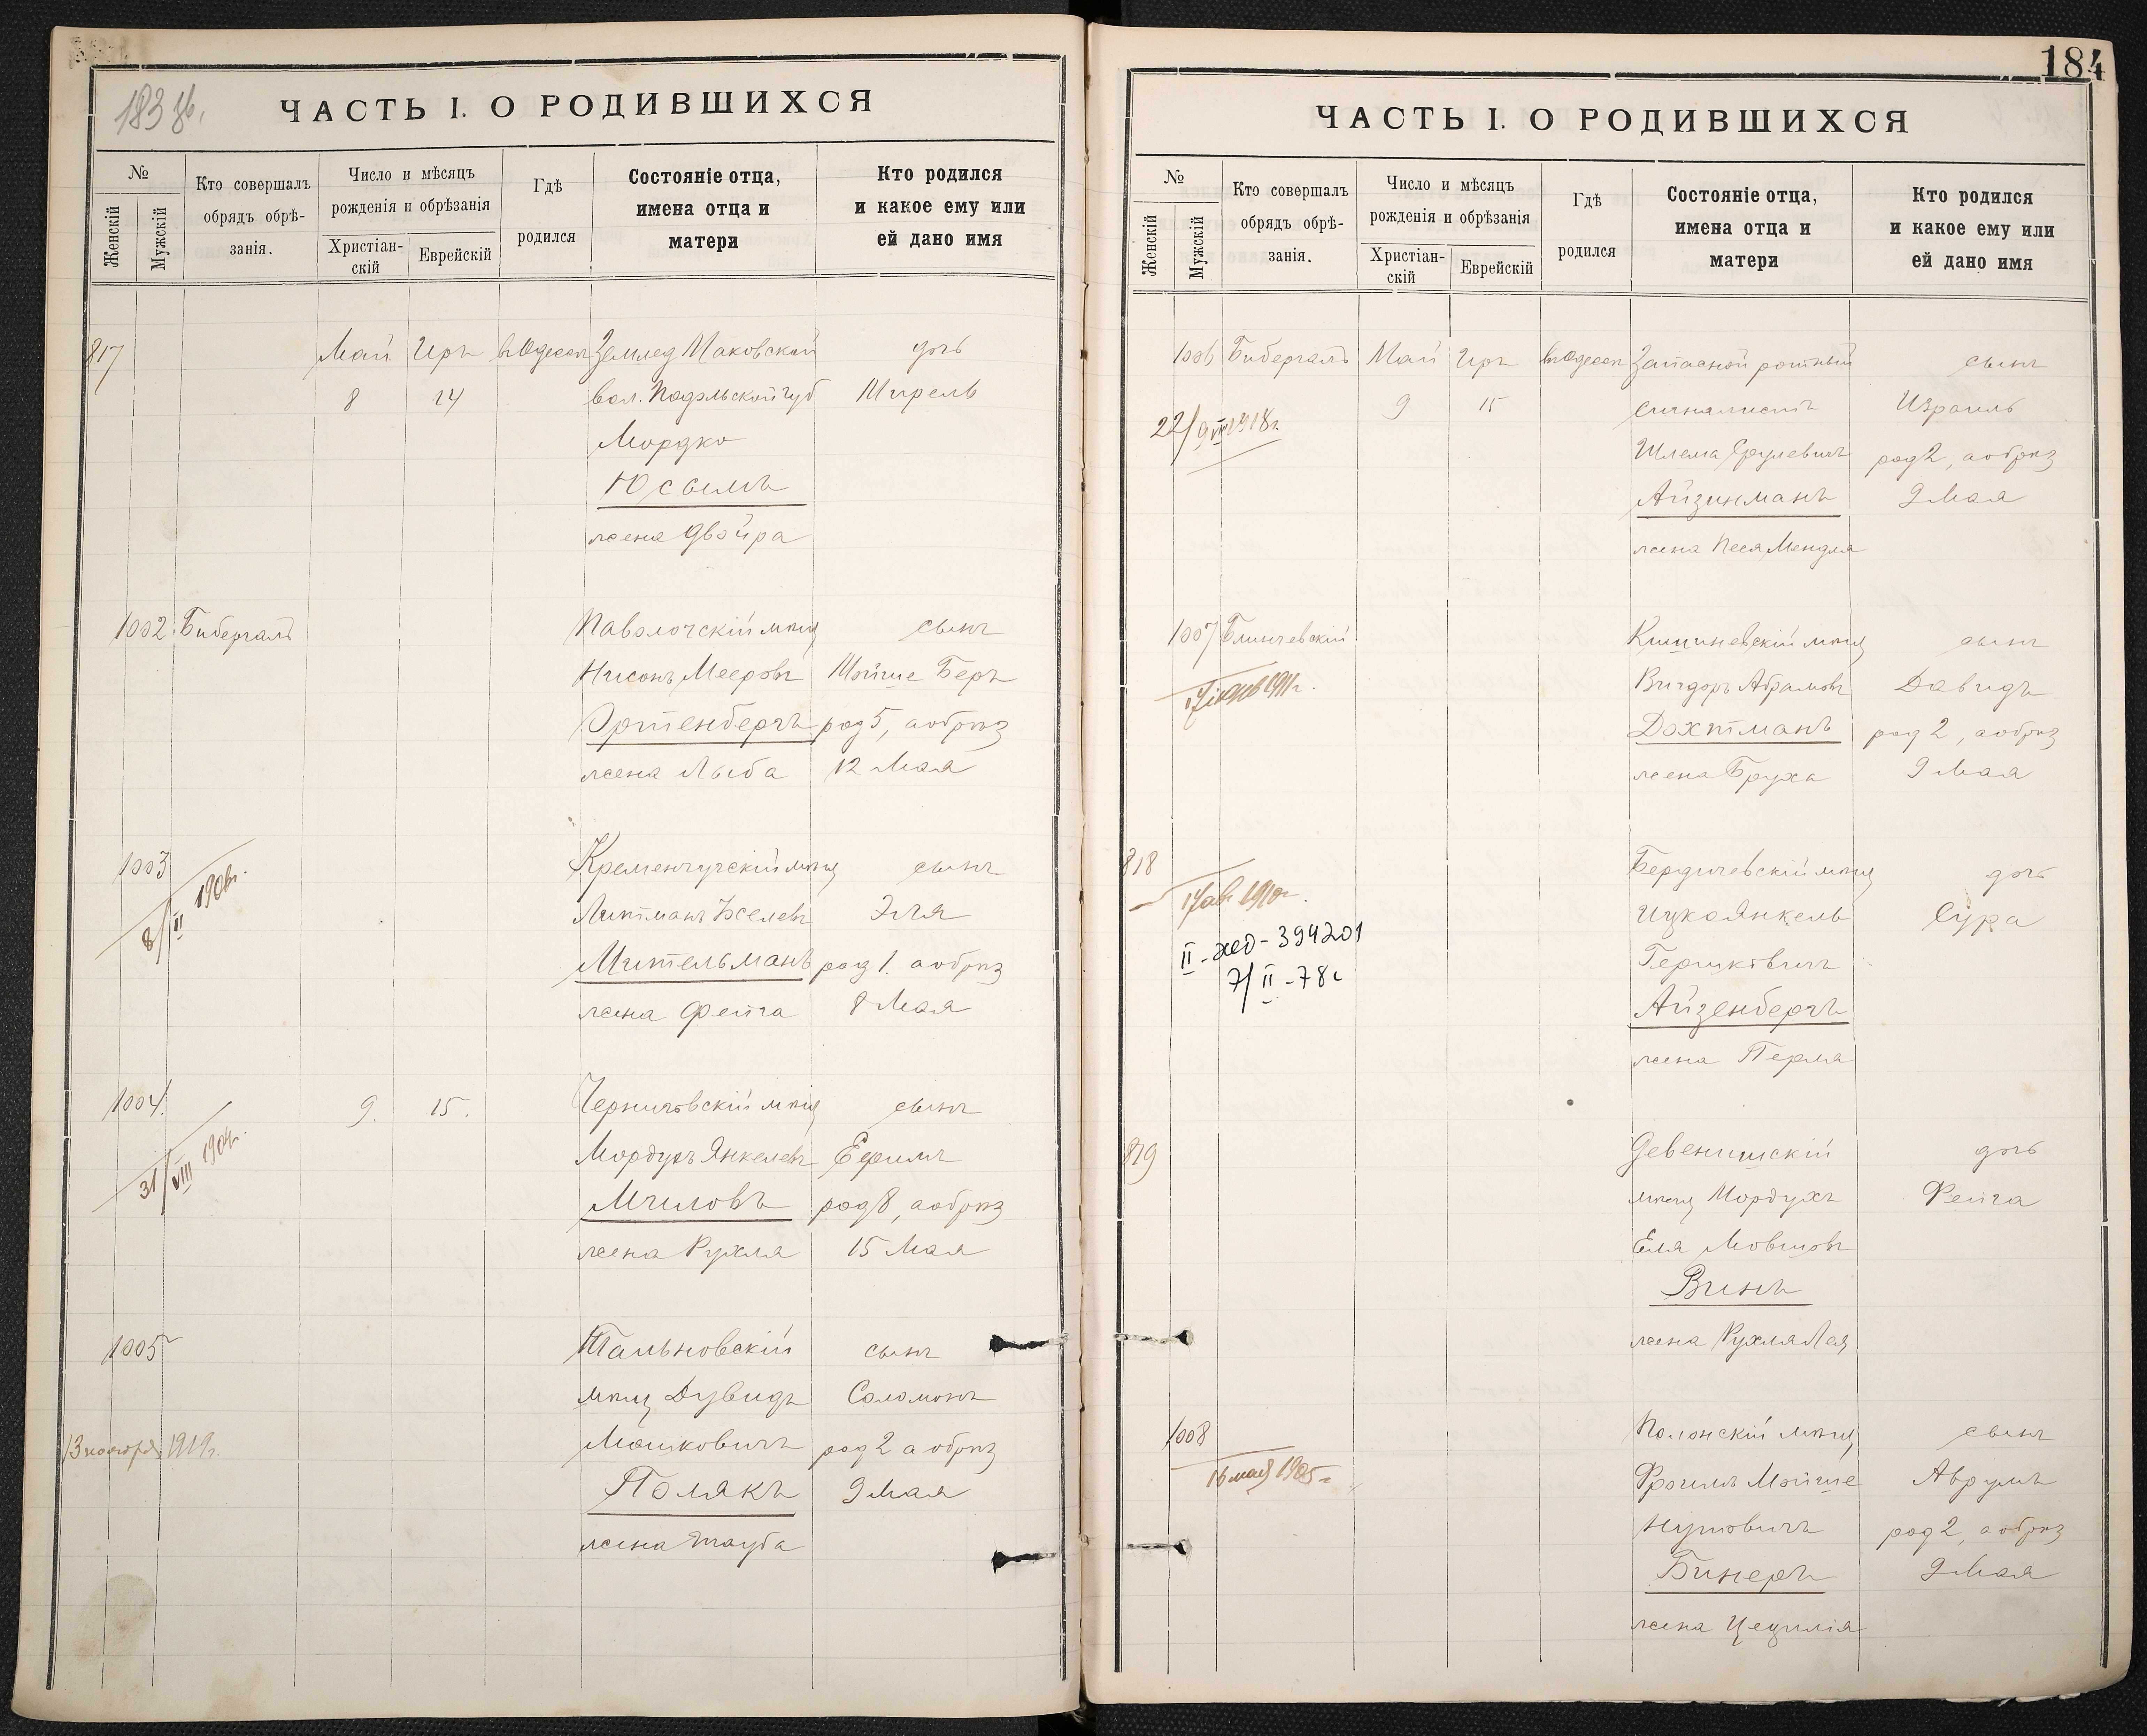 183 об.
ЧАСТЬ I. О РОДИВШИХСЯ
№
Женскій
Мужскій
Кто совершалъ
обрядъ обрѣ-
занія.
Число и мѣсяцъ
рожденія и обрѣзанія
Христіан-
скій
Еврейскій
Гдѣ
родился
Состояніе отца,
имена отца и
матери
Кто родился
и какое ему или
ей дано имя
817 Май Иръ въ Одессѣ Землед Маковской дочь
8 24 вол. Подольской губ Мирель
Мордко
Юсымъ
жена Двойра
1002 Бибергалъ Паволочскій мѣщ сынъ
Нисонъ Мееровъ Мойше Беръ
Эртенбергъ род 5, а обрѣз
жена Лыба 12 Мая
1003 Кременчугскій мѣщ сынъ
8/II 1906г.
Литманъ Іоселевъ Эля
Мительманъ род 1. а обрѣз
жена Фейга 8 Мая
1004. 9. 15. Черниговскій мѣщ сынъ
31/VIII 1904г.
Мордухъ Янкелевъ Ефимъ
Мчиловъ род 8, а обрѣз
жена Рухля 15 Мая
1005 Тальновскій сынъ
мѣщ Дувидъ Соломонъ
13 ноября 1919г. Мошковичъ род 2 а обрѣз
Полякъ 9 Мая
жена Тауба
184
ЧАСТЬ I. О РОДИВШИХСЯ
№
Женскій
Мужскій
Кто совершалъ
обрядъ обрѣ-
занія.
Число и мѣсяцъ
рожденія и обрѣзанія
Христіан-
скій
Еврейскій
Гдѣ
родился
Состояніе отца,
имена отца и
матери
Кто родился
и какое ему или
ей дано имя
1006 Бибергалъ Май Иръ въ Одессѣ Запасной ротный сынъ
9 15 сигналистъ Израиль
22/9 VII 1918г.
Шлема Срулевичъ род 2, а обрѣз
Айзинманъ 9 Мая
жена Песя Мендля
1007 Блинчевскій Кишиневскій мѣщ сынъ
17 1911г.
Вигдоръ Абрамовъ Давидъ
Дохтманъ род 2, а обрѣз
жена Бруха 9 Мая
818 Бердичевскій мѣщ дочь
17 авг 1910г.
Ицко Янкель Сура
II-жо-394201
7/II-78г
Гершковичъ
Айзенбергъ
жена Перля
819 Девенишскій дочь
мѣщ Мордухъ Фейга
Еля Мовшовъ
Винъ
жена Рухля Лея
1008 Полонскій мѣщ сынъ
16 мая 1905г.
Фроимъ Мойше Аврумъ
Нутовичъ род 2, а обрѣз
Бинеръ 9 Мая
жена Цецилія